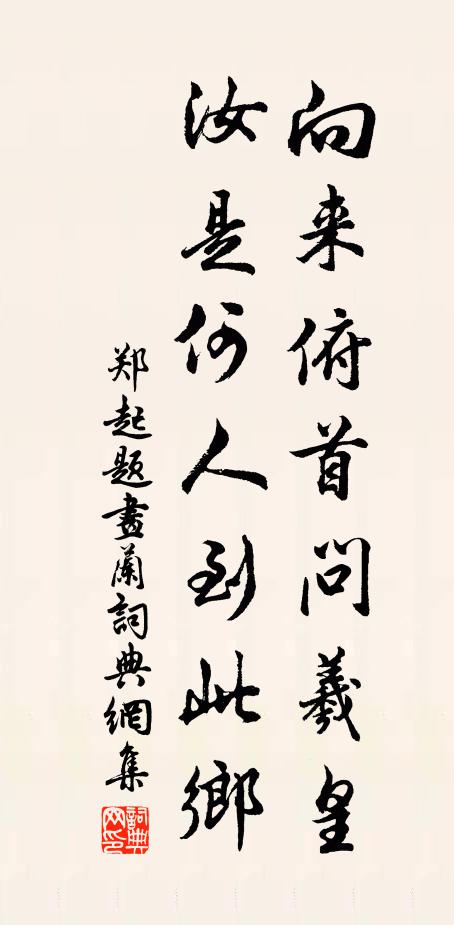 向来俯首问羲皇
汝是何人到此鄉
郑起题畫蘭詞典網集
詞典
网印